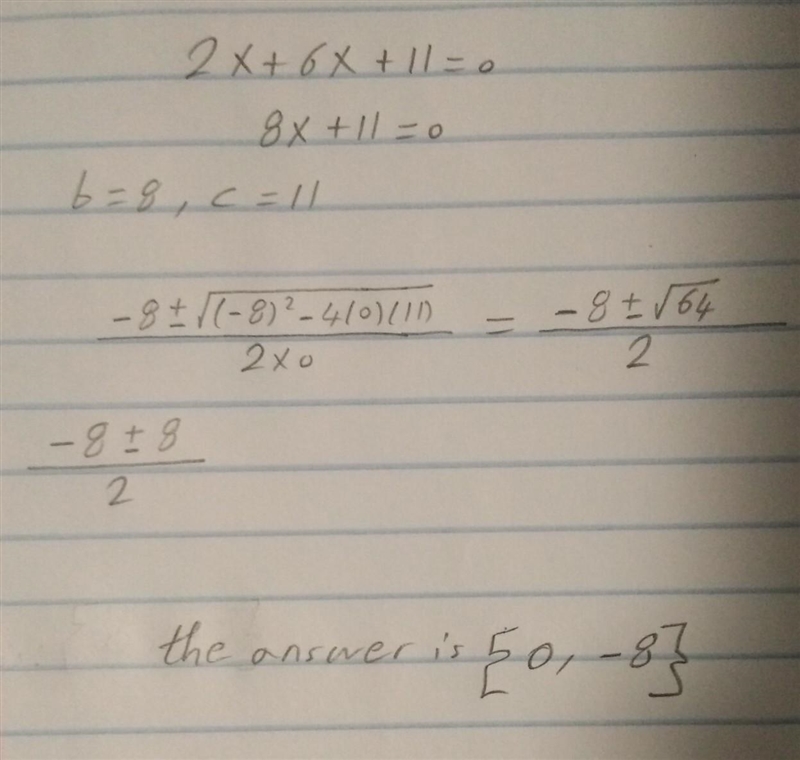 2x+6x+11=0
8x+11=0
b=8, c=11
(-8±√((-8)²-4(0)(11)))/(2×0) = (-8±√64)/2
(-8±8)/2
the answer is {0, -8}